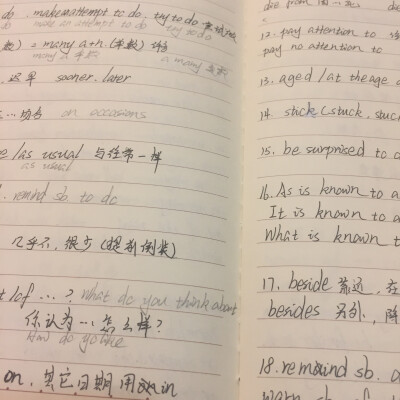 do. make an attempt to do. try to do
do make an attempt to do try to do
= many a + n. (单数) 许多
many a 单数 a many
迟早 sooner. later
on occasions
/as usual 与往常一样
as usual
remind sb to do
几乎不, 很少 (提前倒装)
of …? What do you think about
你认为…怎么样?
How do you like
on, 其它日期用 in
12. pay attention to
pay no attention to
13. aged /at the age
14. stick (stuck, stuc
15. be surprised to
16. As is known to a
It is known to a
What is known t
17. beside 靠近, 在
besides 另外, 除
18. remind sb. o
warn sb. of